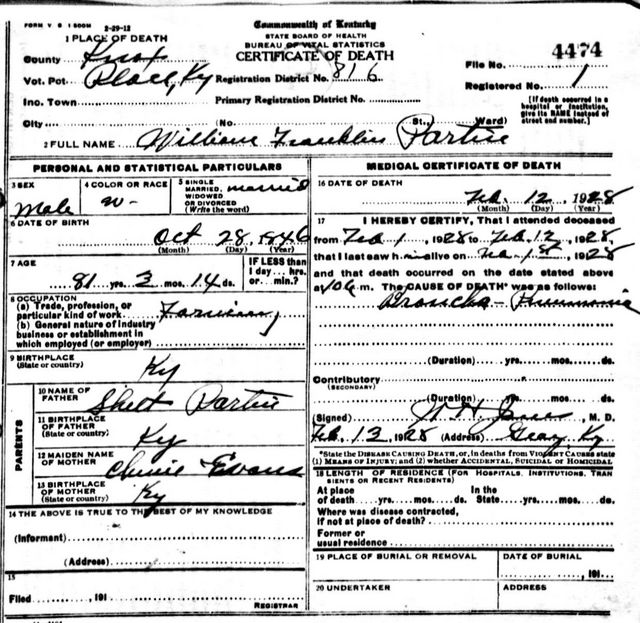 FORM V S 1 500M 2-29-12
Commonwealth of Kentucky
STATE BOARD OF HEALTH
BUREAU OF VITAL STATISTICS
CERTIFICATE OF DEATH
1 PLACE OF DEATH
County Knox
Vot. Pct. Place, Ky Registration District No. 816
Inc. Town Primary Registration District No.
City (No. St., Ward)
File No. 4474
Registered No. 1
[If death occurred in a
hospital or institution,
give its NAME instead of
street and number.]
2 FULL NAME William Franklin Partin
PERSONAL AND STATISTICAL PARTICULARS
3 SEX
Male
4 COLOR OR RACE
W
5 SINGLE
MARRIED,
WIDOWED
OR DIVORCED
(Write the word)
married
6 DATE OF BIRTH
Oct 28, 1846
(Month) (Day) (Year)
7 AGE
81 yrs. 3 mos. 14 ds.
IF LESS than
1 day... hrs.
or... min.?
8 OCCUPATION
(a) Trade, profession, or
particular kind of work Farming
(b) General nature of industry
business or establishment in
which employed (or employer)
9 BIRTHPLACE
(State or country) Ky
PARENTS
10 NAME OF
FATHER Partin
11 BIRTHPLACE
OF FATHER
(State or country) Ky
12 MAIDEN NAME
OF MOTHER Evans
13 BIRTHPLACE
OF MOTHER
(State or country) Ky
14 THE ABOVE IS TRUE TO THE BEST OF MY KNOWLEDGE
(Informant)
(Address)
15
Filed , 191
REGISTRAR
MEDICAL CERTIFICATE OF DEATH
16 DATE OF DEATH
Feb. 12, 1928
(Month) (Day) (Year)
17 I HEREBY CERTIFY, That I attended deceased
from Feb 1, 1928 to Feb. 12, 1928,
that I last saw him alive on Feb. 1928
and that death occurred on the date stated above
at m. The CAUSE OF DEATH* was as follows:
Broncho-Pneumonia
(Duration) yrs. mos. ds.
Contributory
(SECONDARY)
(Duration) yrs. mos. ds.
(Signed) M. D.
Feb. 13, 1928 (Address) Gray, Ky
*State the DISEASE CAUSING DEATH, or, in deaths from VIOLENT CAUSES state
(1) MEANS OF INJURY; and (2) whether ACCIDENTAL, SUICIDAL or HOMICIDAL
18 LENGTH OF RESIDENCE (FOR HOSPITALS, INSTITUTIONS, TRAN
SIENTS OR RECENT RESIDENTS)
At place In the
of death yrs. mos. ds. State yrs. mos. ds.
Where was disease contracted,
if not at place of death?
Former or
usual residence
19 PLACE OF BURIAL OR REMOVAL
DATE OF BURIAL
, 191
20 UNDERTAKER
ADDRESS